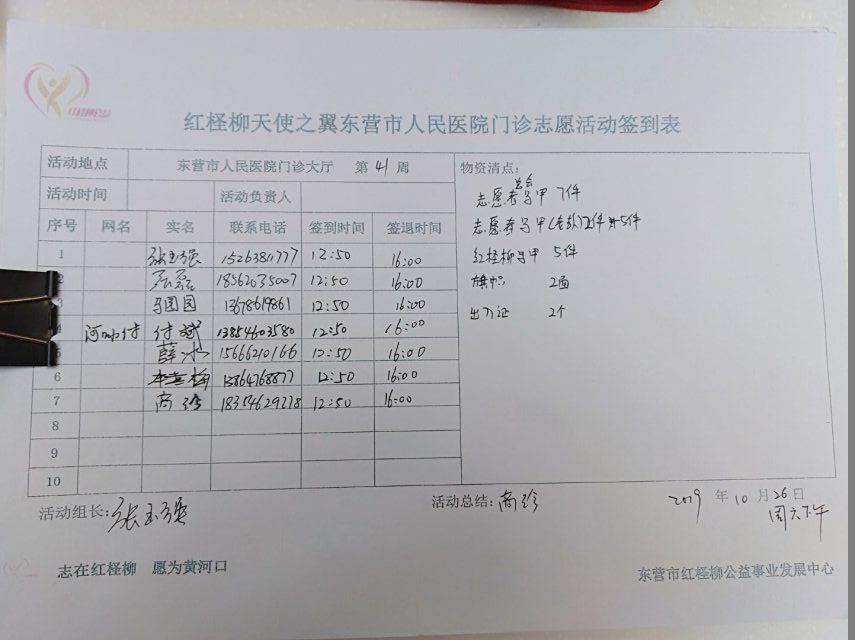 红柽柳天使之翼东营市人民医院门诊志愿活动签到表
活动地点 东营市人民医院门诊大厅 第41周
活动时间 活动负责人
序号 网名 实名 联系电话 签到时间 签退时间
1 张玉强 15263811777 12:50 16:00
磊 18562035007 12:50 16:00
马园园 13678619861 12:50 16:00
付斌 13854603580 12:50 16:00
薛冰 15666210166 12:50 16:00
6 梅 13864768877 12:50 16:00
7 商珍 18354629278 12:50 16:00
8
9
10
物资清点:
总会
志愿者马甲 7件
志愿者马甲(老款) 5件
红柽柳马甲 5件
旗帜 2面
出入证 2个
活动组长:张玉强
活动总结:商珍
2019年10月26日
周六下午
志在红柽柳 愿为黄河口
东营市红柽柳公益事业发展中心